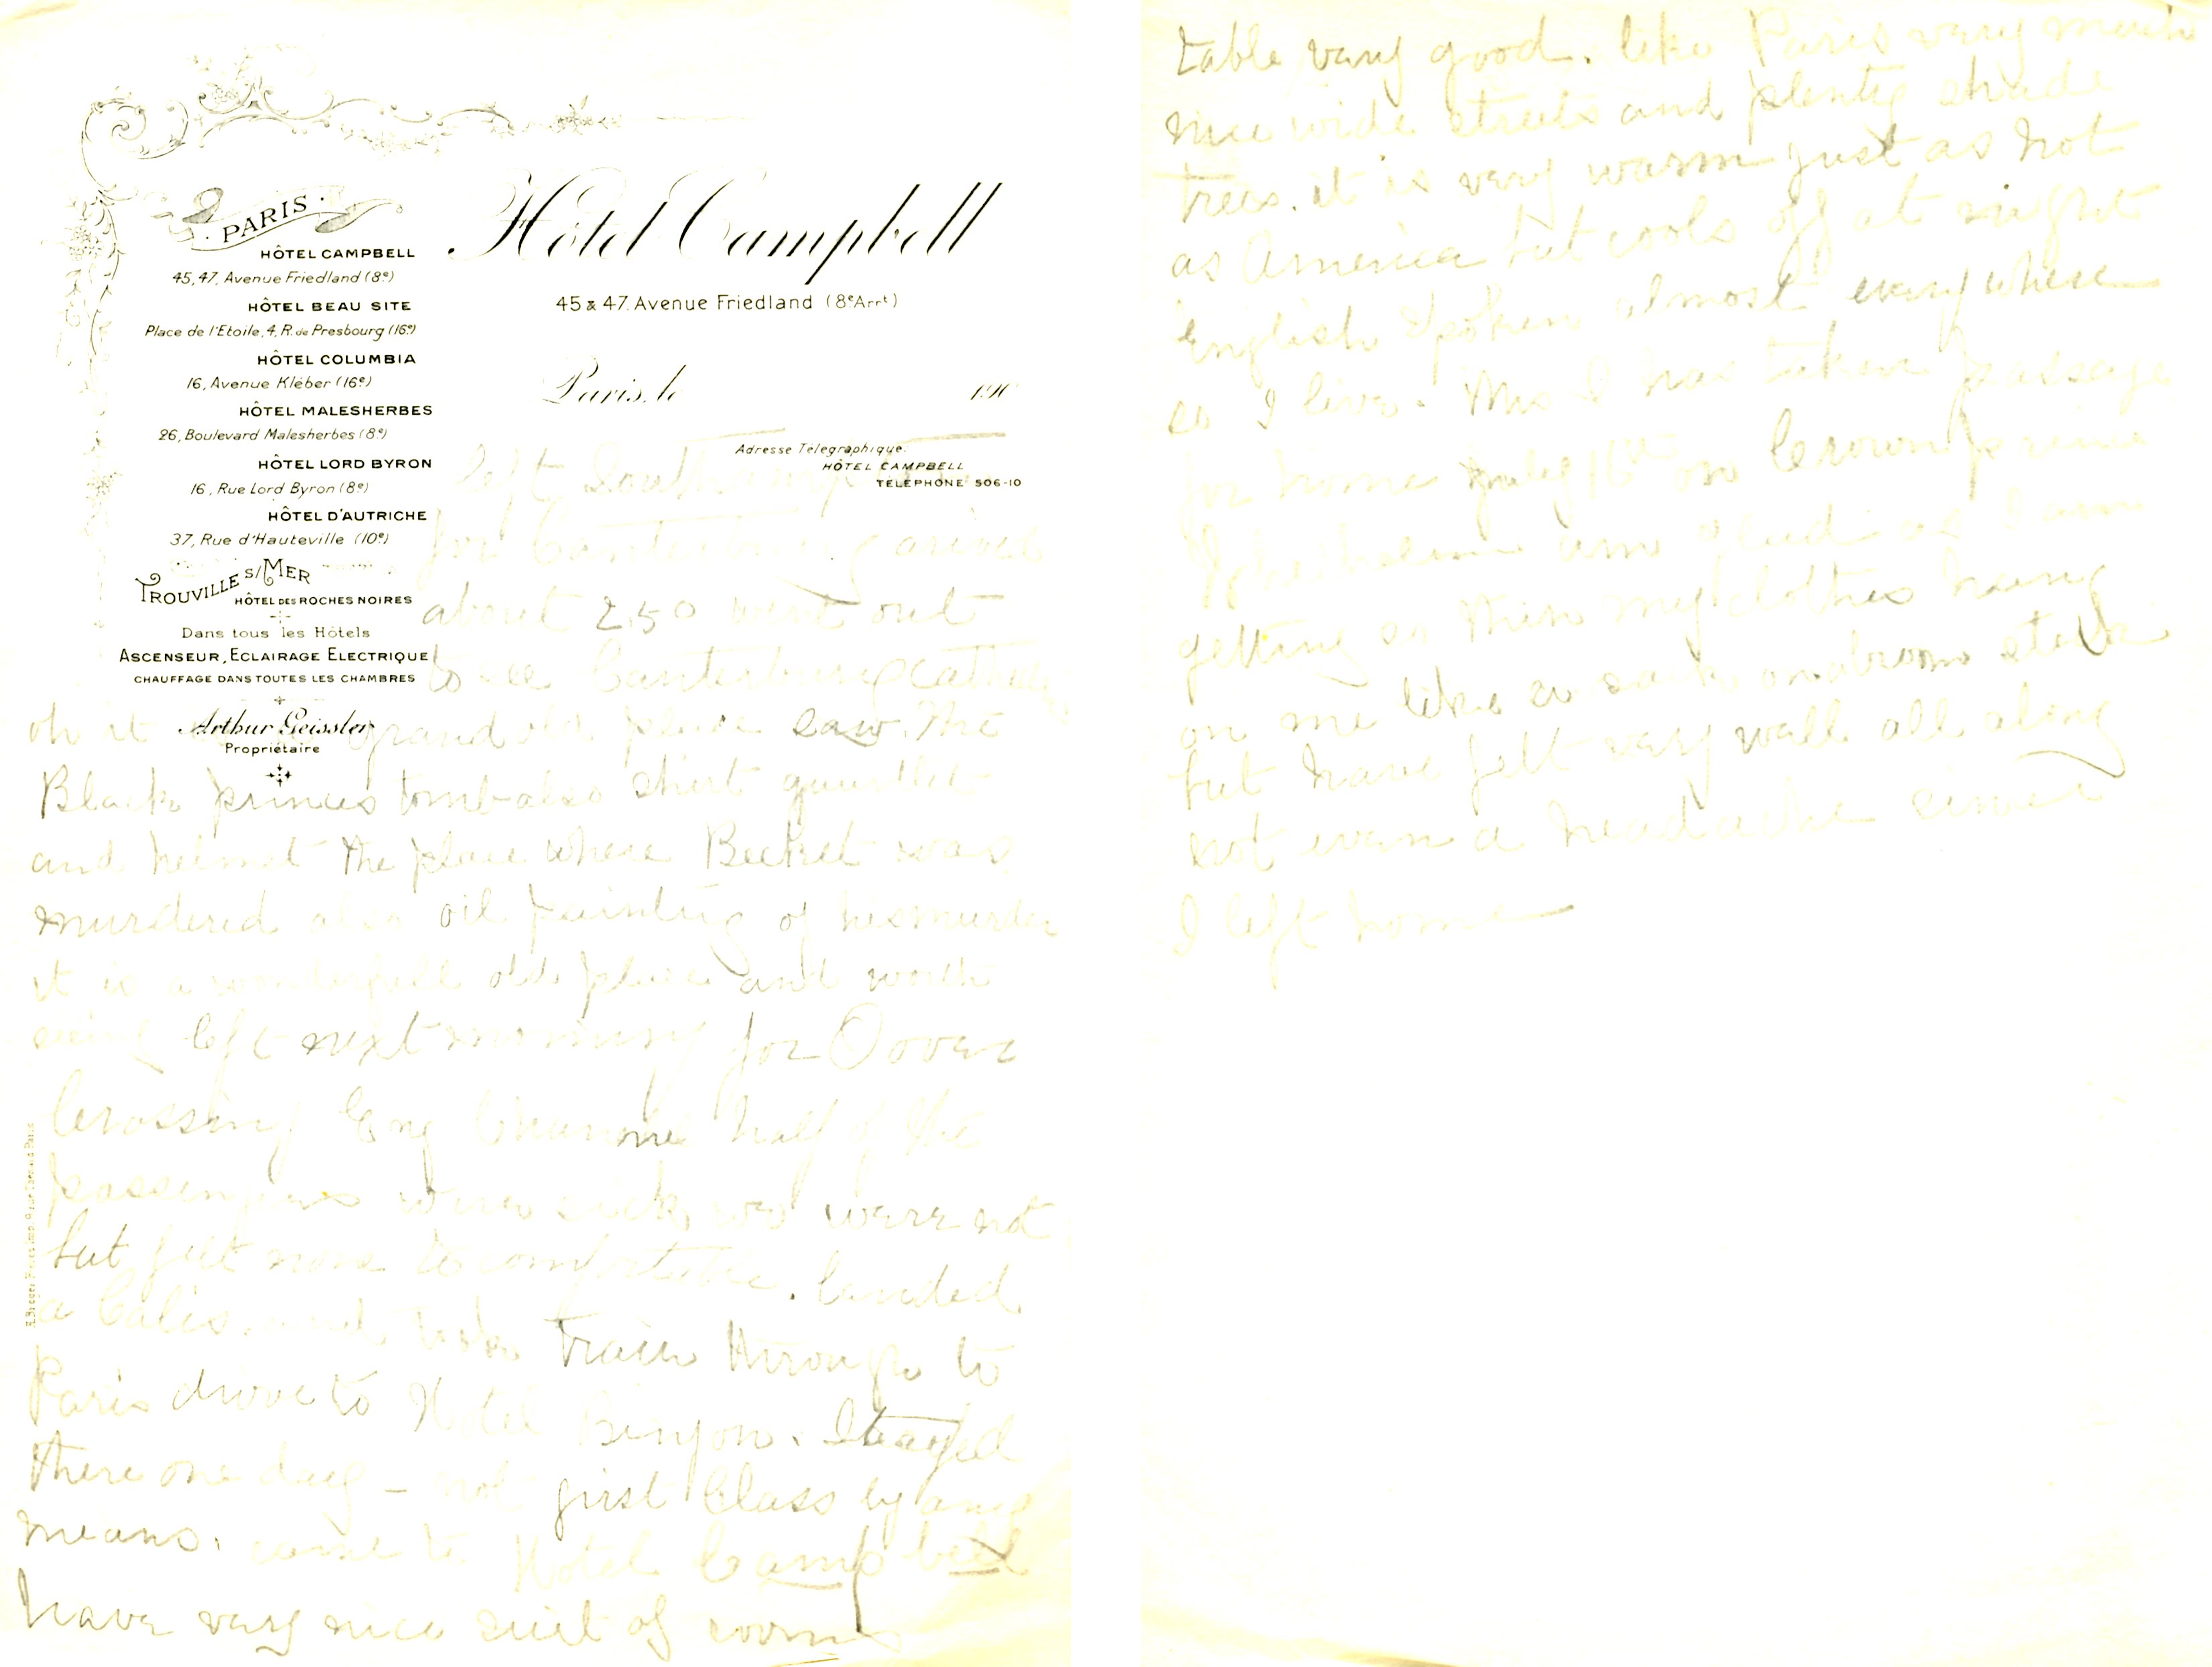 PARIS
HÔTEL CAMPBELL
45, 47, Avenue Friedland (8e)
HÔTEL BEAU SITE
Place de l'Etoile, 4, R. de Presbourg (16e)
HÔTEL COLUMBIA
16, Avenue Kléber (16e)
HÔTEL MALESHERBES
26, Boulevard Malesherbes (8e)
HÔTEL LORD BYRON
16, Rue Lord Byron (8e)
HÔTEL D'AUTRICHE
37, Rue d'Hauteville (10e)
TROUVILLE S/MER
HÔTEL DES ROCHES NOIRES
Dans tous les Hôtels
ASCENSEUR, ECLAIRAGE ELECTRIQUE
CHAUFFAGE DANS TOUTES LES CHAMBRES
Arthur Geissler
Propriétaire
Hôtel Campbell
45 & 47. Avenue Friedland (8e Arrt)
Paris, le 190
Adresse Télégraphique.
HÔTEL CAMPBELL
TÉLÉPHONE 506-10
left
for Canterbury arived
about 2.50 went out
to see Canterbury
oh it grand old place saw the
Black princes tomb also shirt
and helmet the place where Becket was
murdered also oil painting of his murder
it is a wonderfull old place and worth
seeing left next morning for Dover
Crossing Eng Channel half of the
passengers were sick we were not
but felt none to comfortable. landed
a Calis and took train through to
Paris drove to Hotel Binyon. Stayed
there one day – not first Class by any
means. came to Hotel Campbell
have very nice suit of rooms
table very good. like Paris very much
nice wide streets and plenty shade
trees. it is very warm just as hot
as America but cools off at night
English Spoken almost everywhere
so I live. Mrs I has taken passage
for home july on Crown prince
am glad of I am
getting so thin my clothes hang
on me like a sack on a broom
but have felt very well all along
not even a headache since
I left home